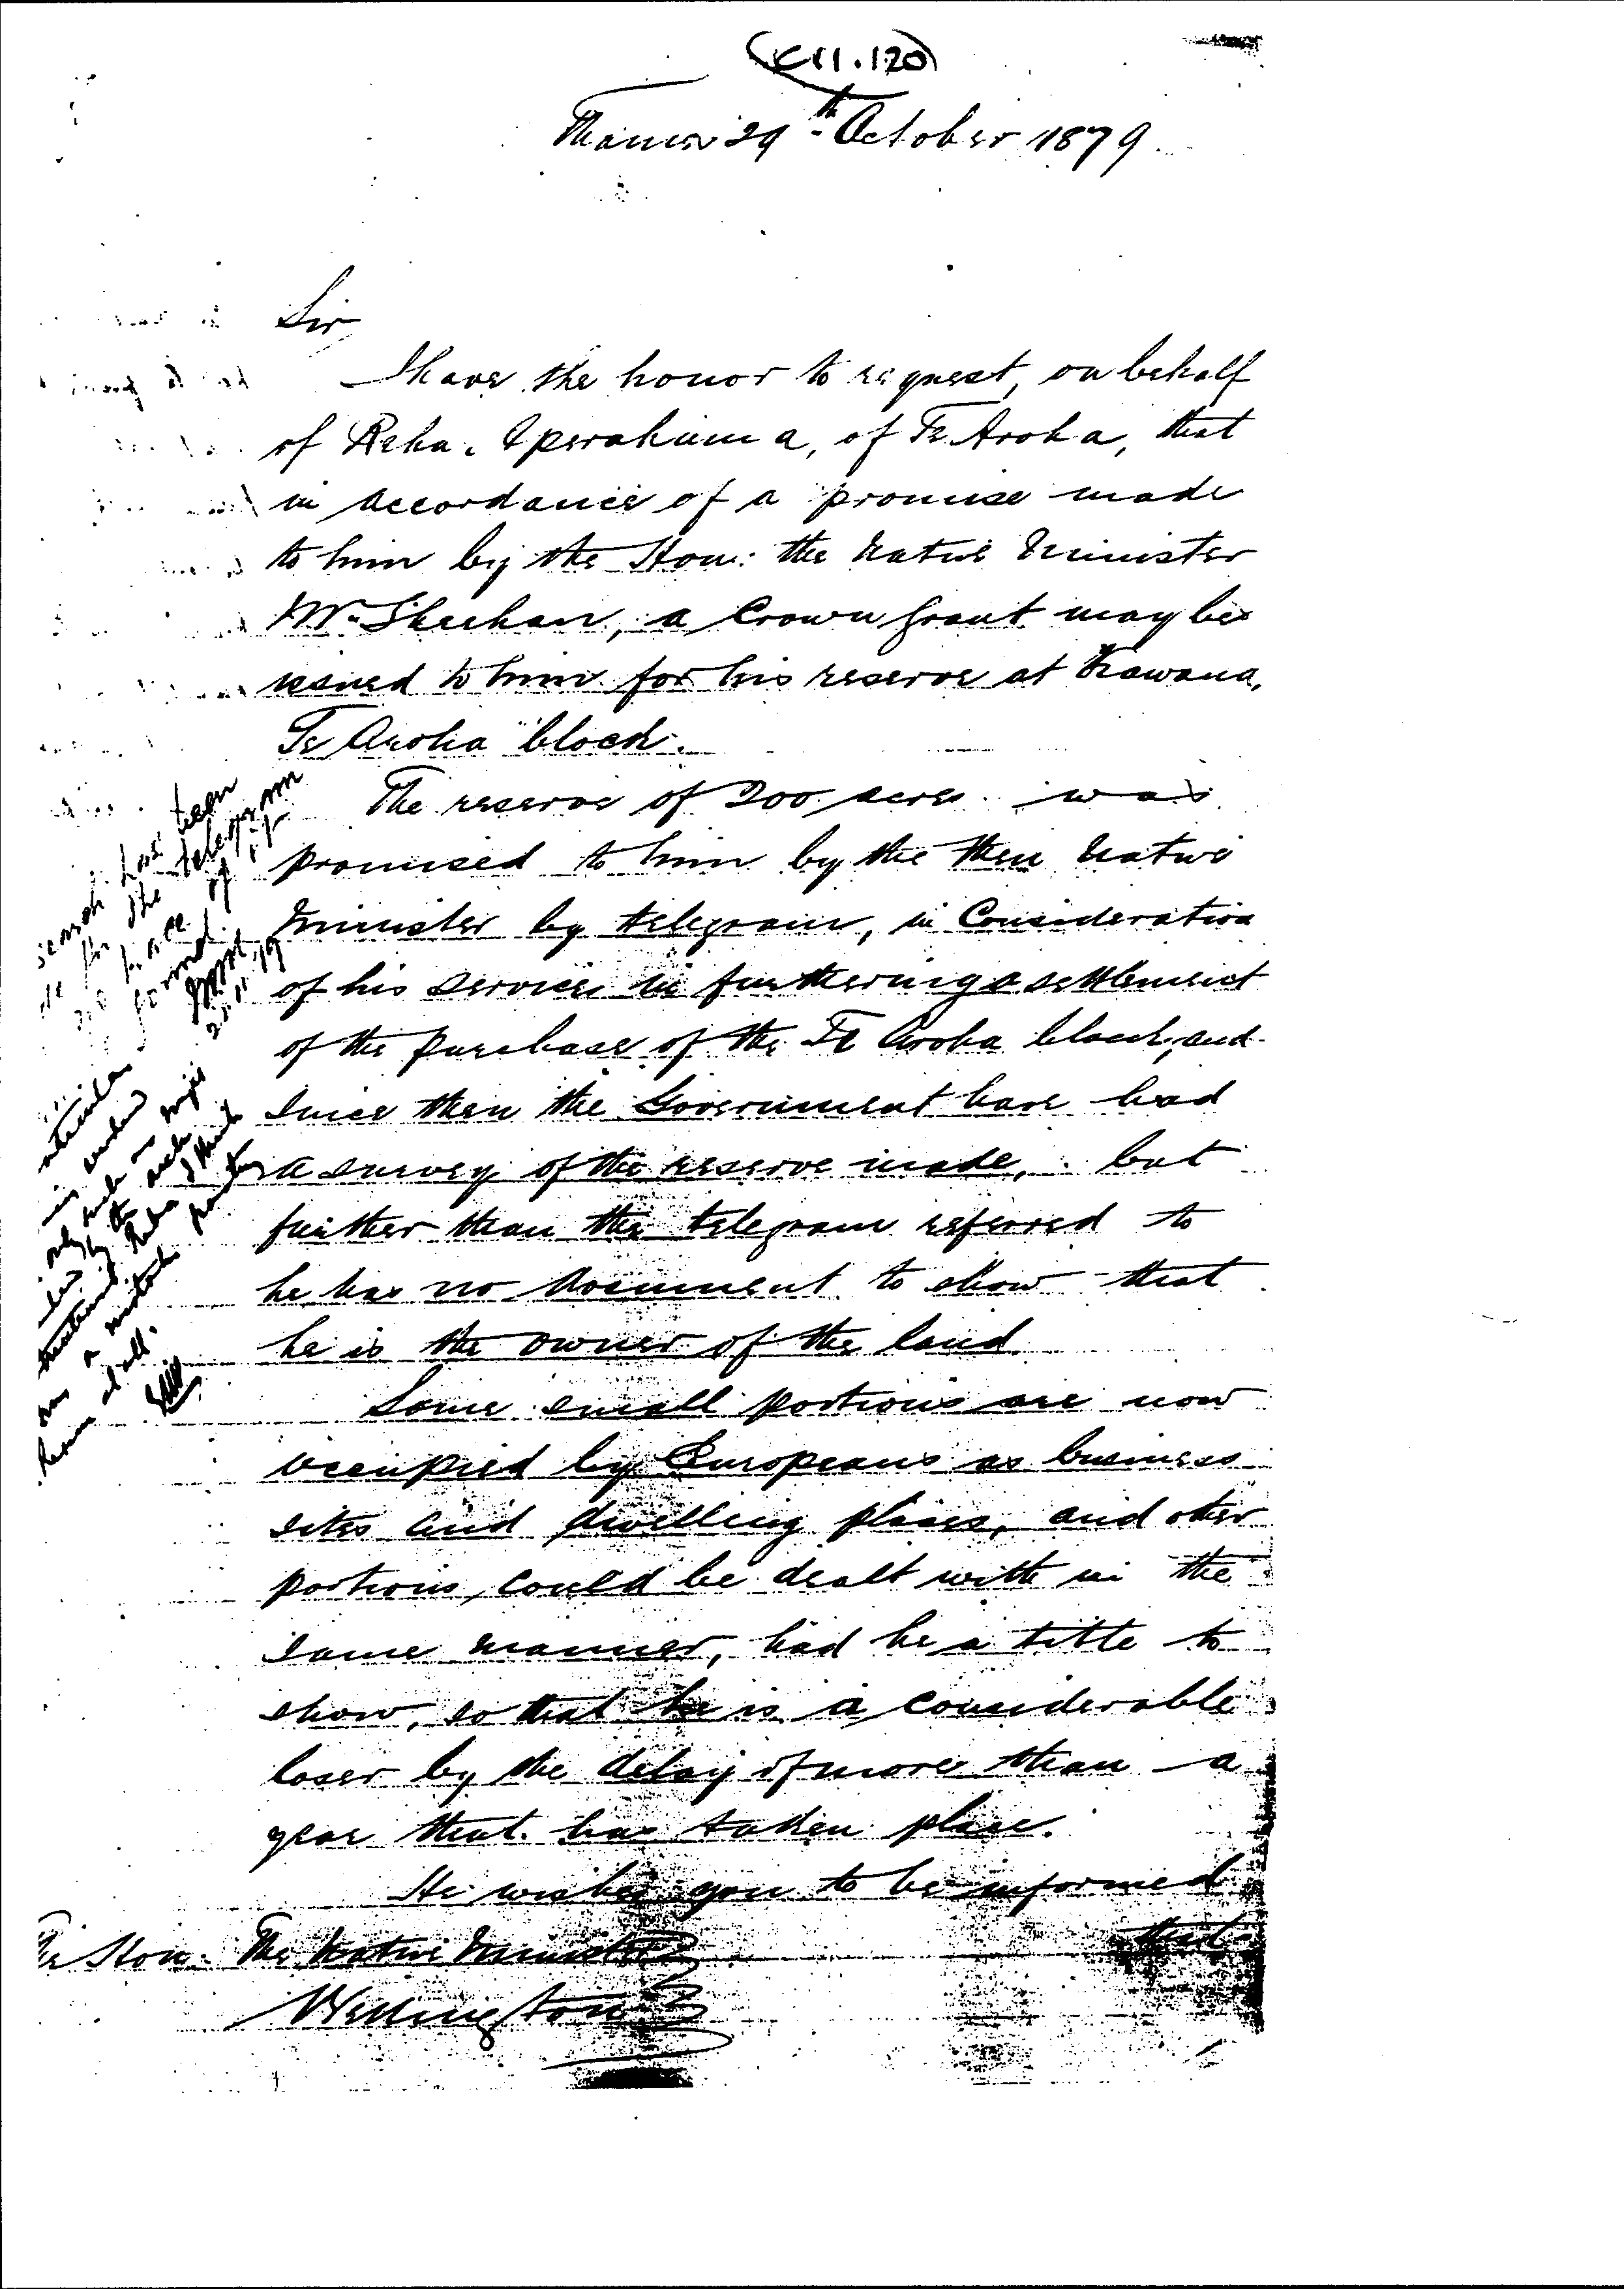 C11.120
Thames 29th October 1879.
Sir
I have the honor to request, on behalf
of Reha Aperahama, of Te Aroha, that
in accordance of a promise made
to him by the Hon: the Native Minister
Mr. Sheehan, a Crown Grant may be
issued to him for his reserve at
Te Aroha block.
The reserve of 200 acres was
promised to him by the then Native
Minister by telegram, in Consideration
of his services in furthering a settlement
of the purchase of the Te Aroha block, and
since then the Government have had
a survey of the reserve made, but
further than the telegram referred to
he has no document to show that
he is the owner of the land.
Some small portions are now
occupied by Europeans as business
sites and dwelling places, and other
portions could be dealt with in the
same manner, had he a title to
show, so that he is a considerable
loser by the delay of more than a
year that has taken place.
He wishes you to be informed
that
The Hon: The Native Minister
Wellington
search has been
for the telegram
no trace of it
found.
at all.